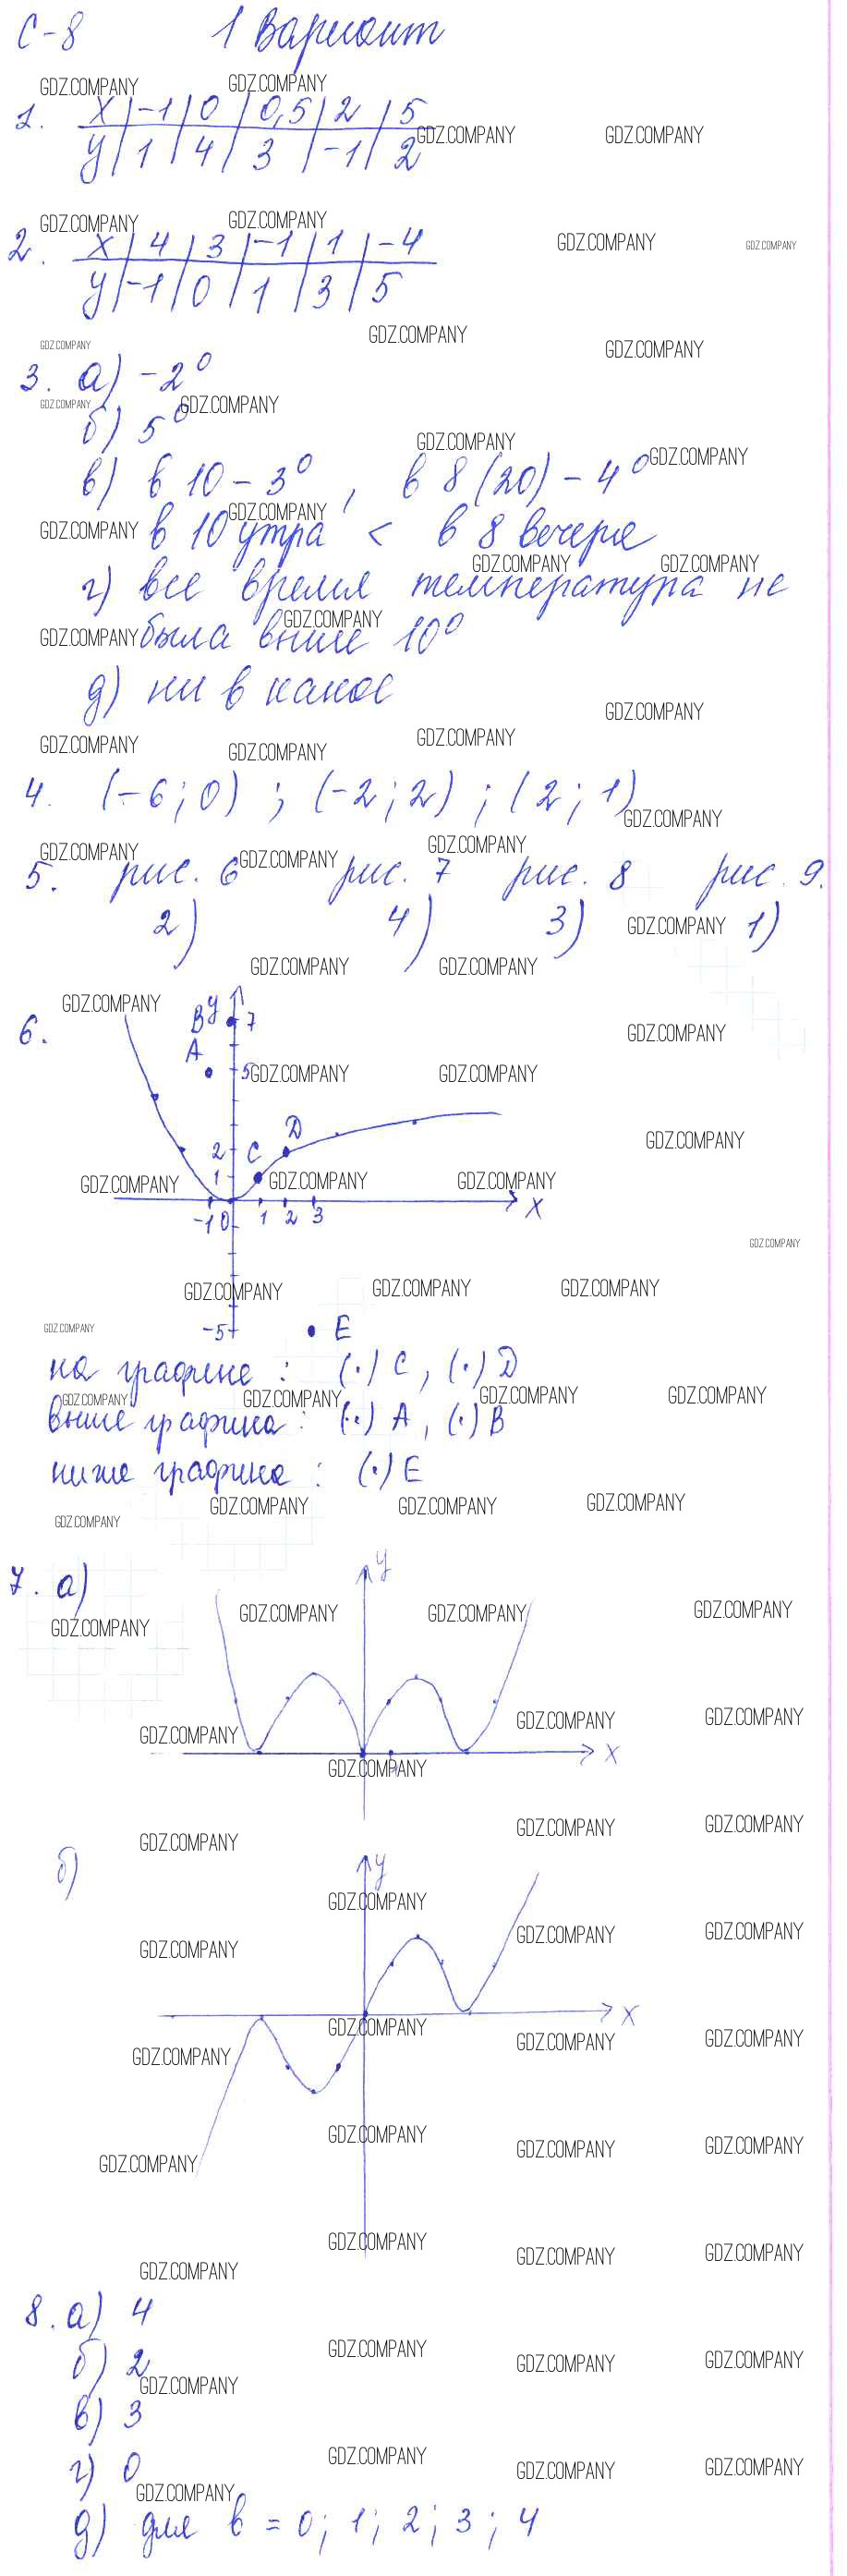 С-8 1 Вариант
1. x -1 0 0,5 2 5
y 1 4 3 -1 2
2. x 4 3 -1 1 -4
y -1 0 1 3 5
3. а) -2⁰
б) 5⁰
в) в 10 - 3⁰, в 8(20) - 4⁰
в 10 утра < в 8 вечера
г) все время температура не
была выше 10⁰
д) ни в какое
4. (-6; 0) ; (-2; 2) ; (2; 1)
5. рис. 6 рис. 7 рис. 8 рис. 9.
2) 4) 3) 1)
6.
y
B 7
A 5
D
2 C
1
-1 0 1 2 3 x
-5 E
на графике : (·) C, (·) D
выше графика: (·) A, (·) B
ниже графика : (·) E
7. а)
y
x
б)
y
x
8. а) 4
б) 2
в) 3
г) 0
д) для b = 0; 1; 2; 3; 4
GDZ.COMPANY